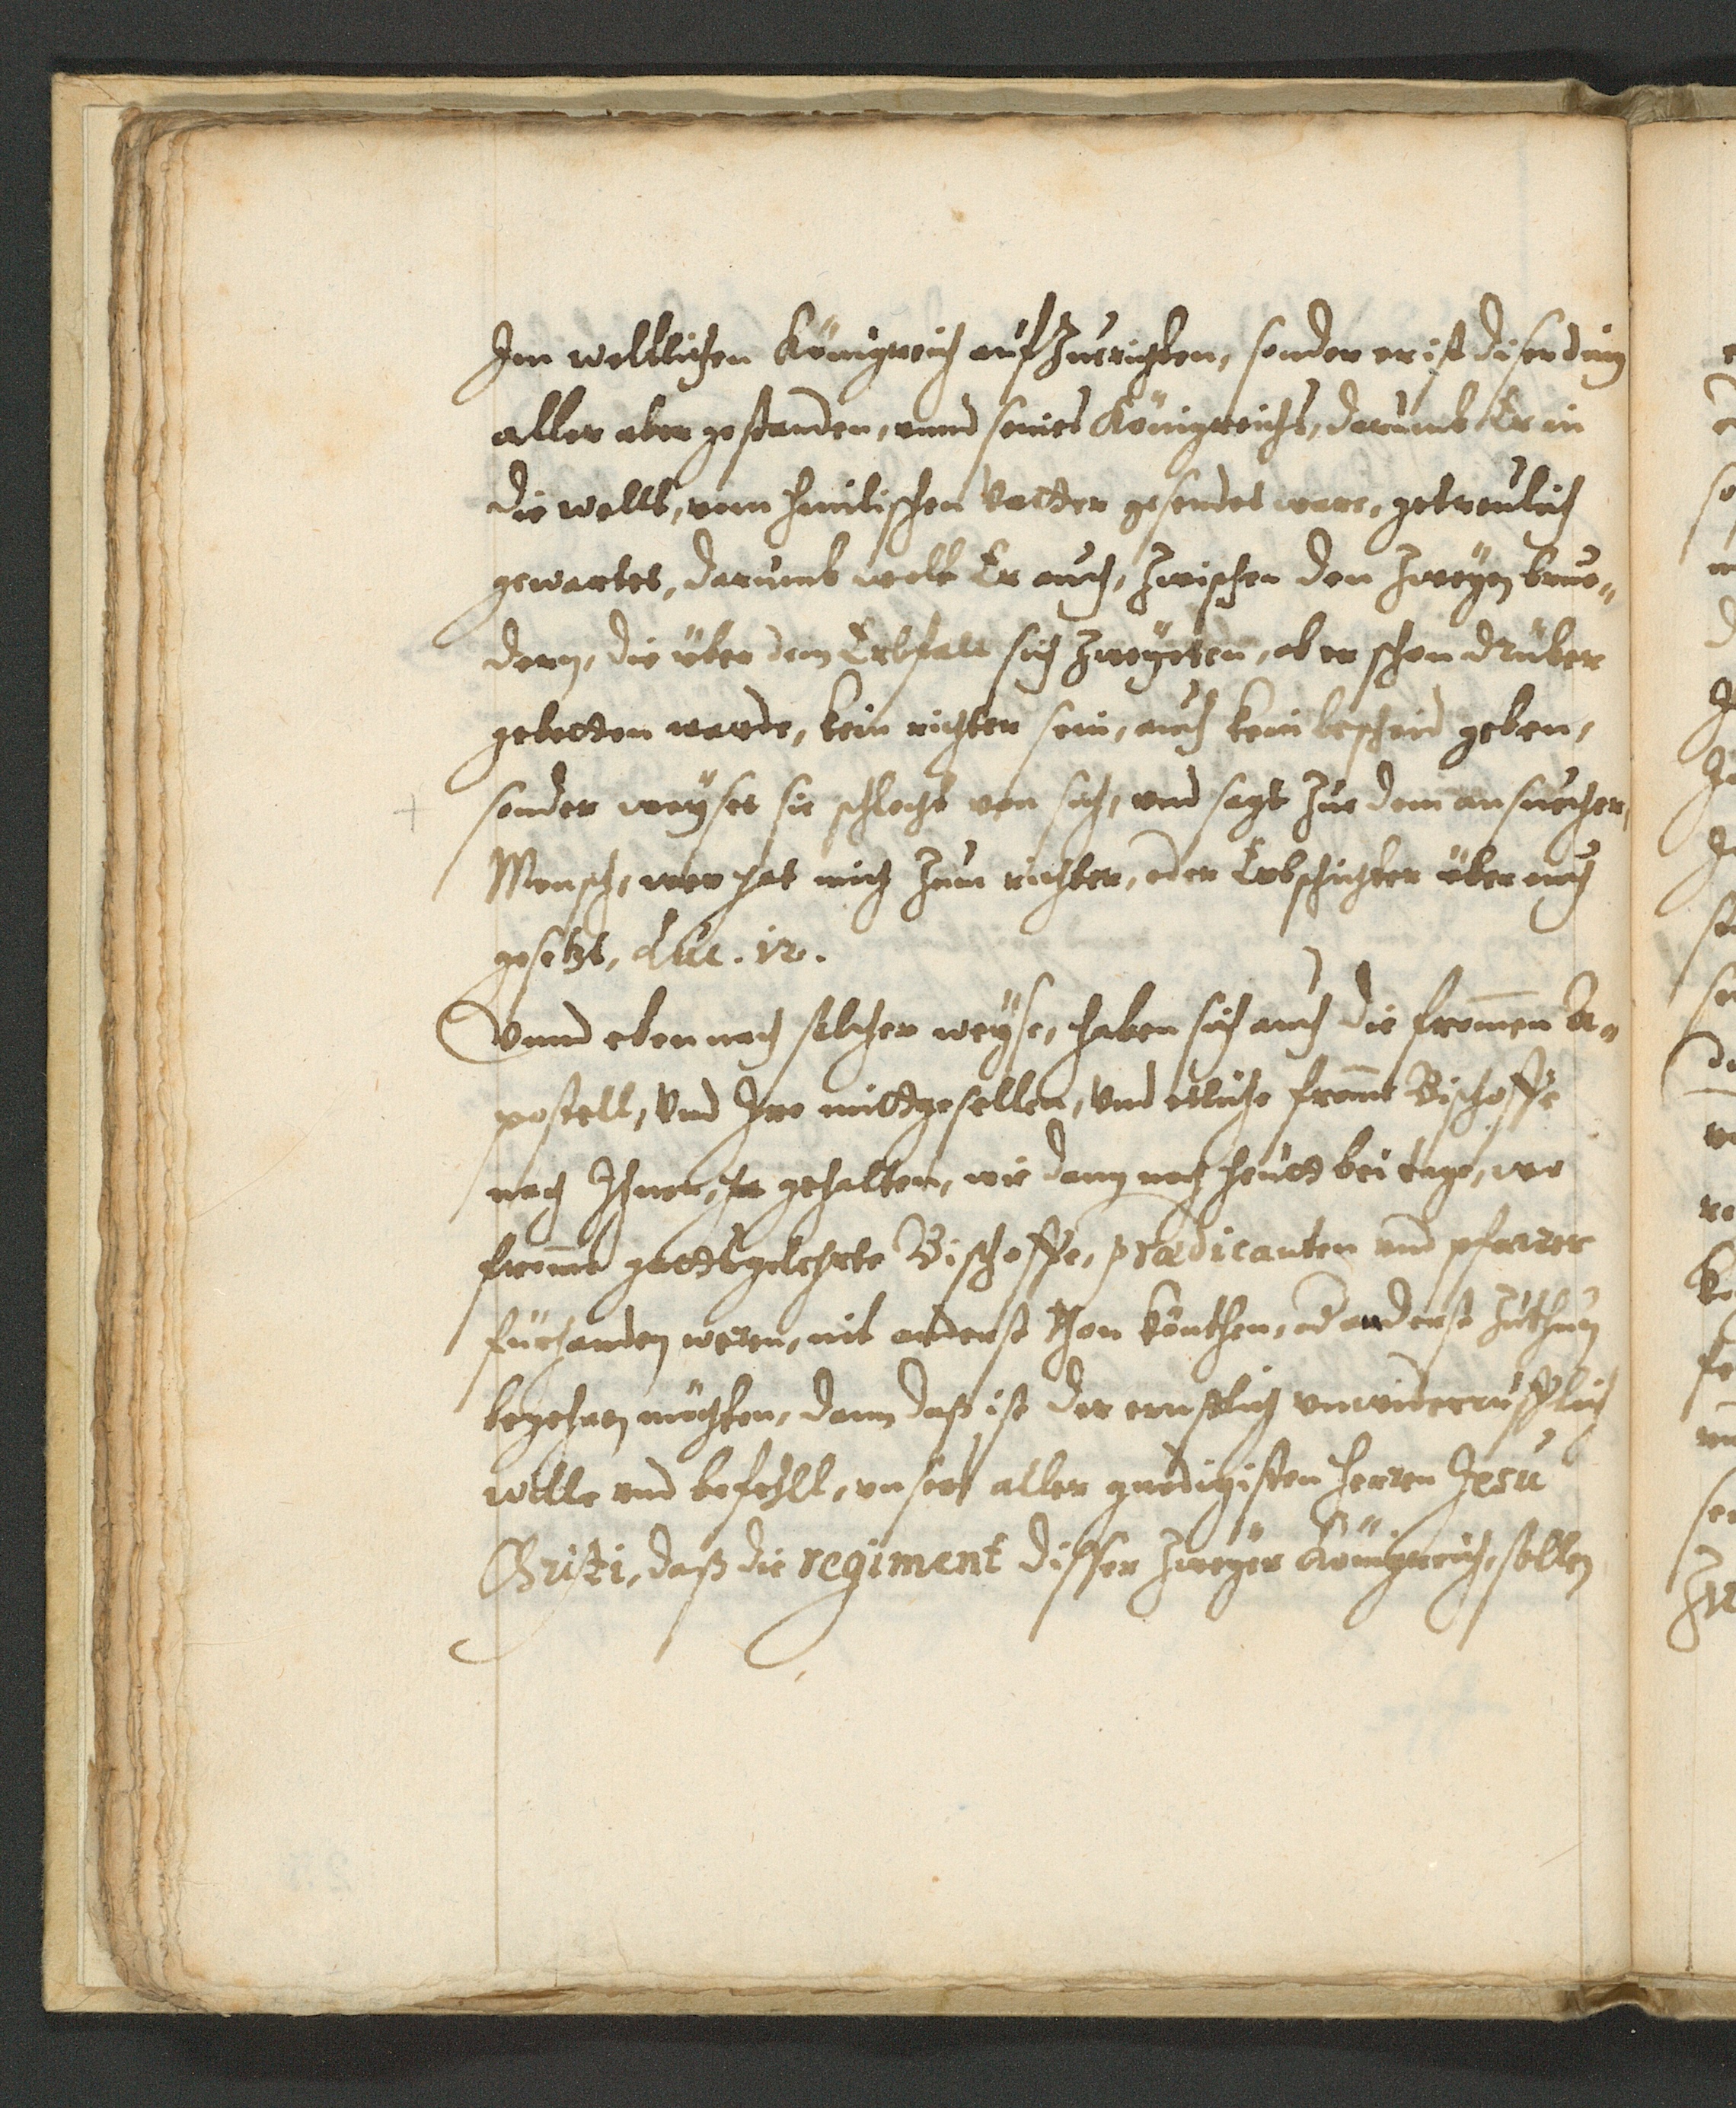 Im weltlichen Königreich auffzurichten, sonder er ist diser ding
aller aber gestanden, unnd seines Königreichs, darumb Er in
die wellt, vom himlischen Vatter gesendet ware, getreulich
gewartet, darumb wollt Er auch, zwischen den zweyen brue„
dern, die über dem Erbfall sich zweyeten, ob er schon drüber
gebetten warde, kein richter sein, auch kein bescheid geben,
sonder weyset sie schlecht von sich, und sagt zue dem ansuecher,
Mensch, wer hat mich zum richter, oder Erbschichter über euch
gesetzt, Luc. 12.
Vnnd eben nach solcher weyse, haben sich auch die from̄en A„
postell, Vnd Ire mittgesellen, Vnd etliche from̄e Bischoffe
nach Ihnen, gehalten, wie dann noch heutt bei tage, wo
from̄e gottsgelehrte Bischoffe, prædicanten und pfarrer
fürhanden weren, nit anderst thon könthen, od anderst zuthun
begehren möchten, dann daß ist der ernstlich unwiderrufflich
wille und befehll, unsers aller gnedigisten herren Jesu
Christi, daß die regiment disser zweyer Königreich, sollen